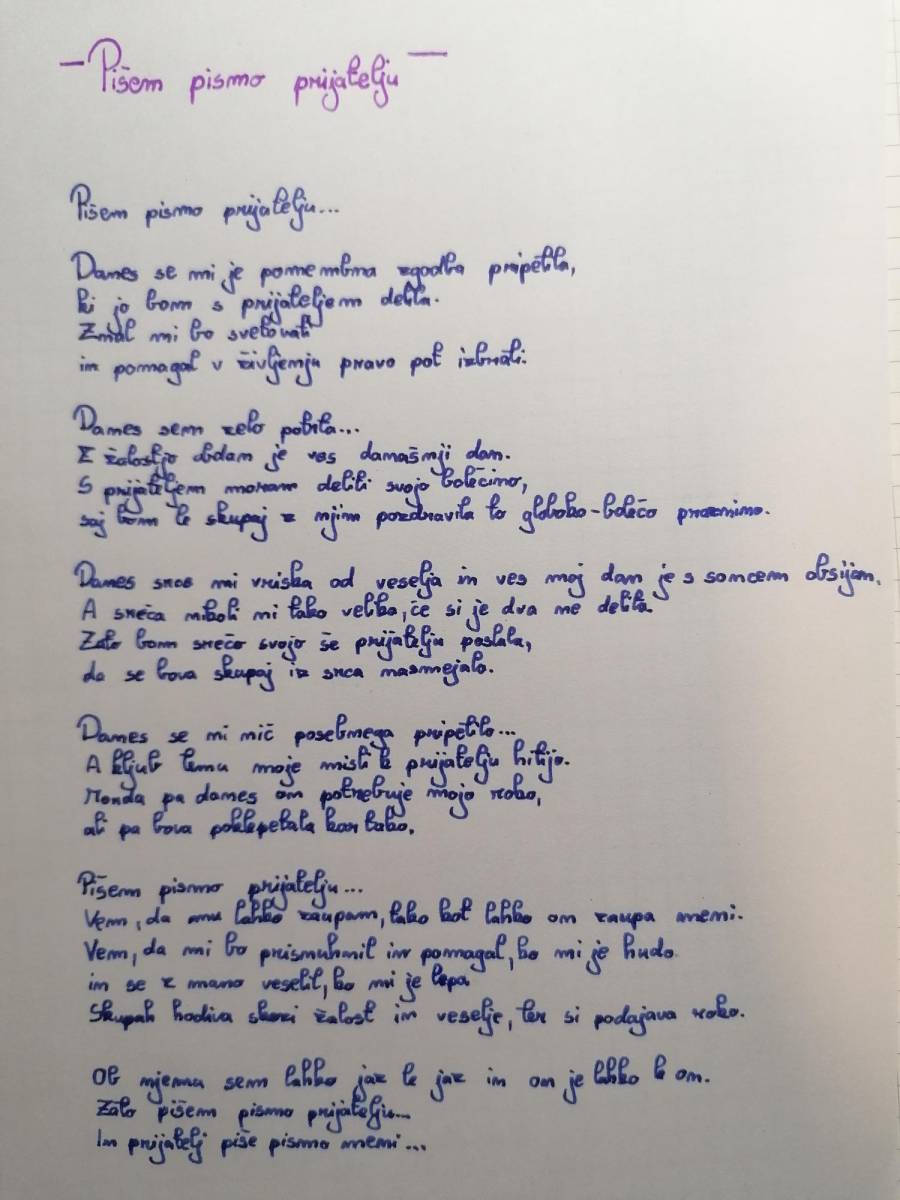 - Pišem pismo prijatelju -
Pišem pismo prijatelju...
Danes se mi je pomembna zgodba pripetila,
ki jo bom s prijateljem delila.
Znal mi bo svetovati
in pomagal v življenju pravo pot izbrati.
Danes sem zelo potrta...
Z žalostjo obdan je ves današnji dan.
S prijateljem moram deliti svojo bolečino,
saj bom le skupaj z njim pozdravila to globoko-bolečo praznino.
Danes srce mi vriska od veselja in ves moj dan je s soncem obsijan.
A sreča nikoli ni tako velika, če si je dva ne delita.
Zato bom srečo svojo še prijatelju poslala,
da se bova skupaj iz srca nasmejala.
Danes se mi nič posebnega pripetilo...
A kljub temu moje misli k prijatelju hitijo.
Morda pa danes on potrebuje mojo roko,
ali pa bova poklepetala kar tako.
Pišem pismo prijatelju...
Vem, da mu lahko zaupam, tako kot lahko on zaupa meni.
Vem, da mi bo prisluhnil in pomagal, ko mi je hudo
in se z mano veselil, ko mi je lepo.
Skupah hodiva skozi žalost in veselje, ter si podajava roko.
Ob njemu sem lahko jaz le jaz in on je lahko le on.
Zato pišem pismo prijatelju...
In prijatelj piše pismo meni...